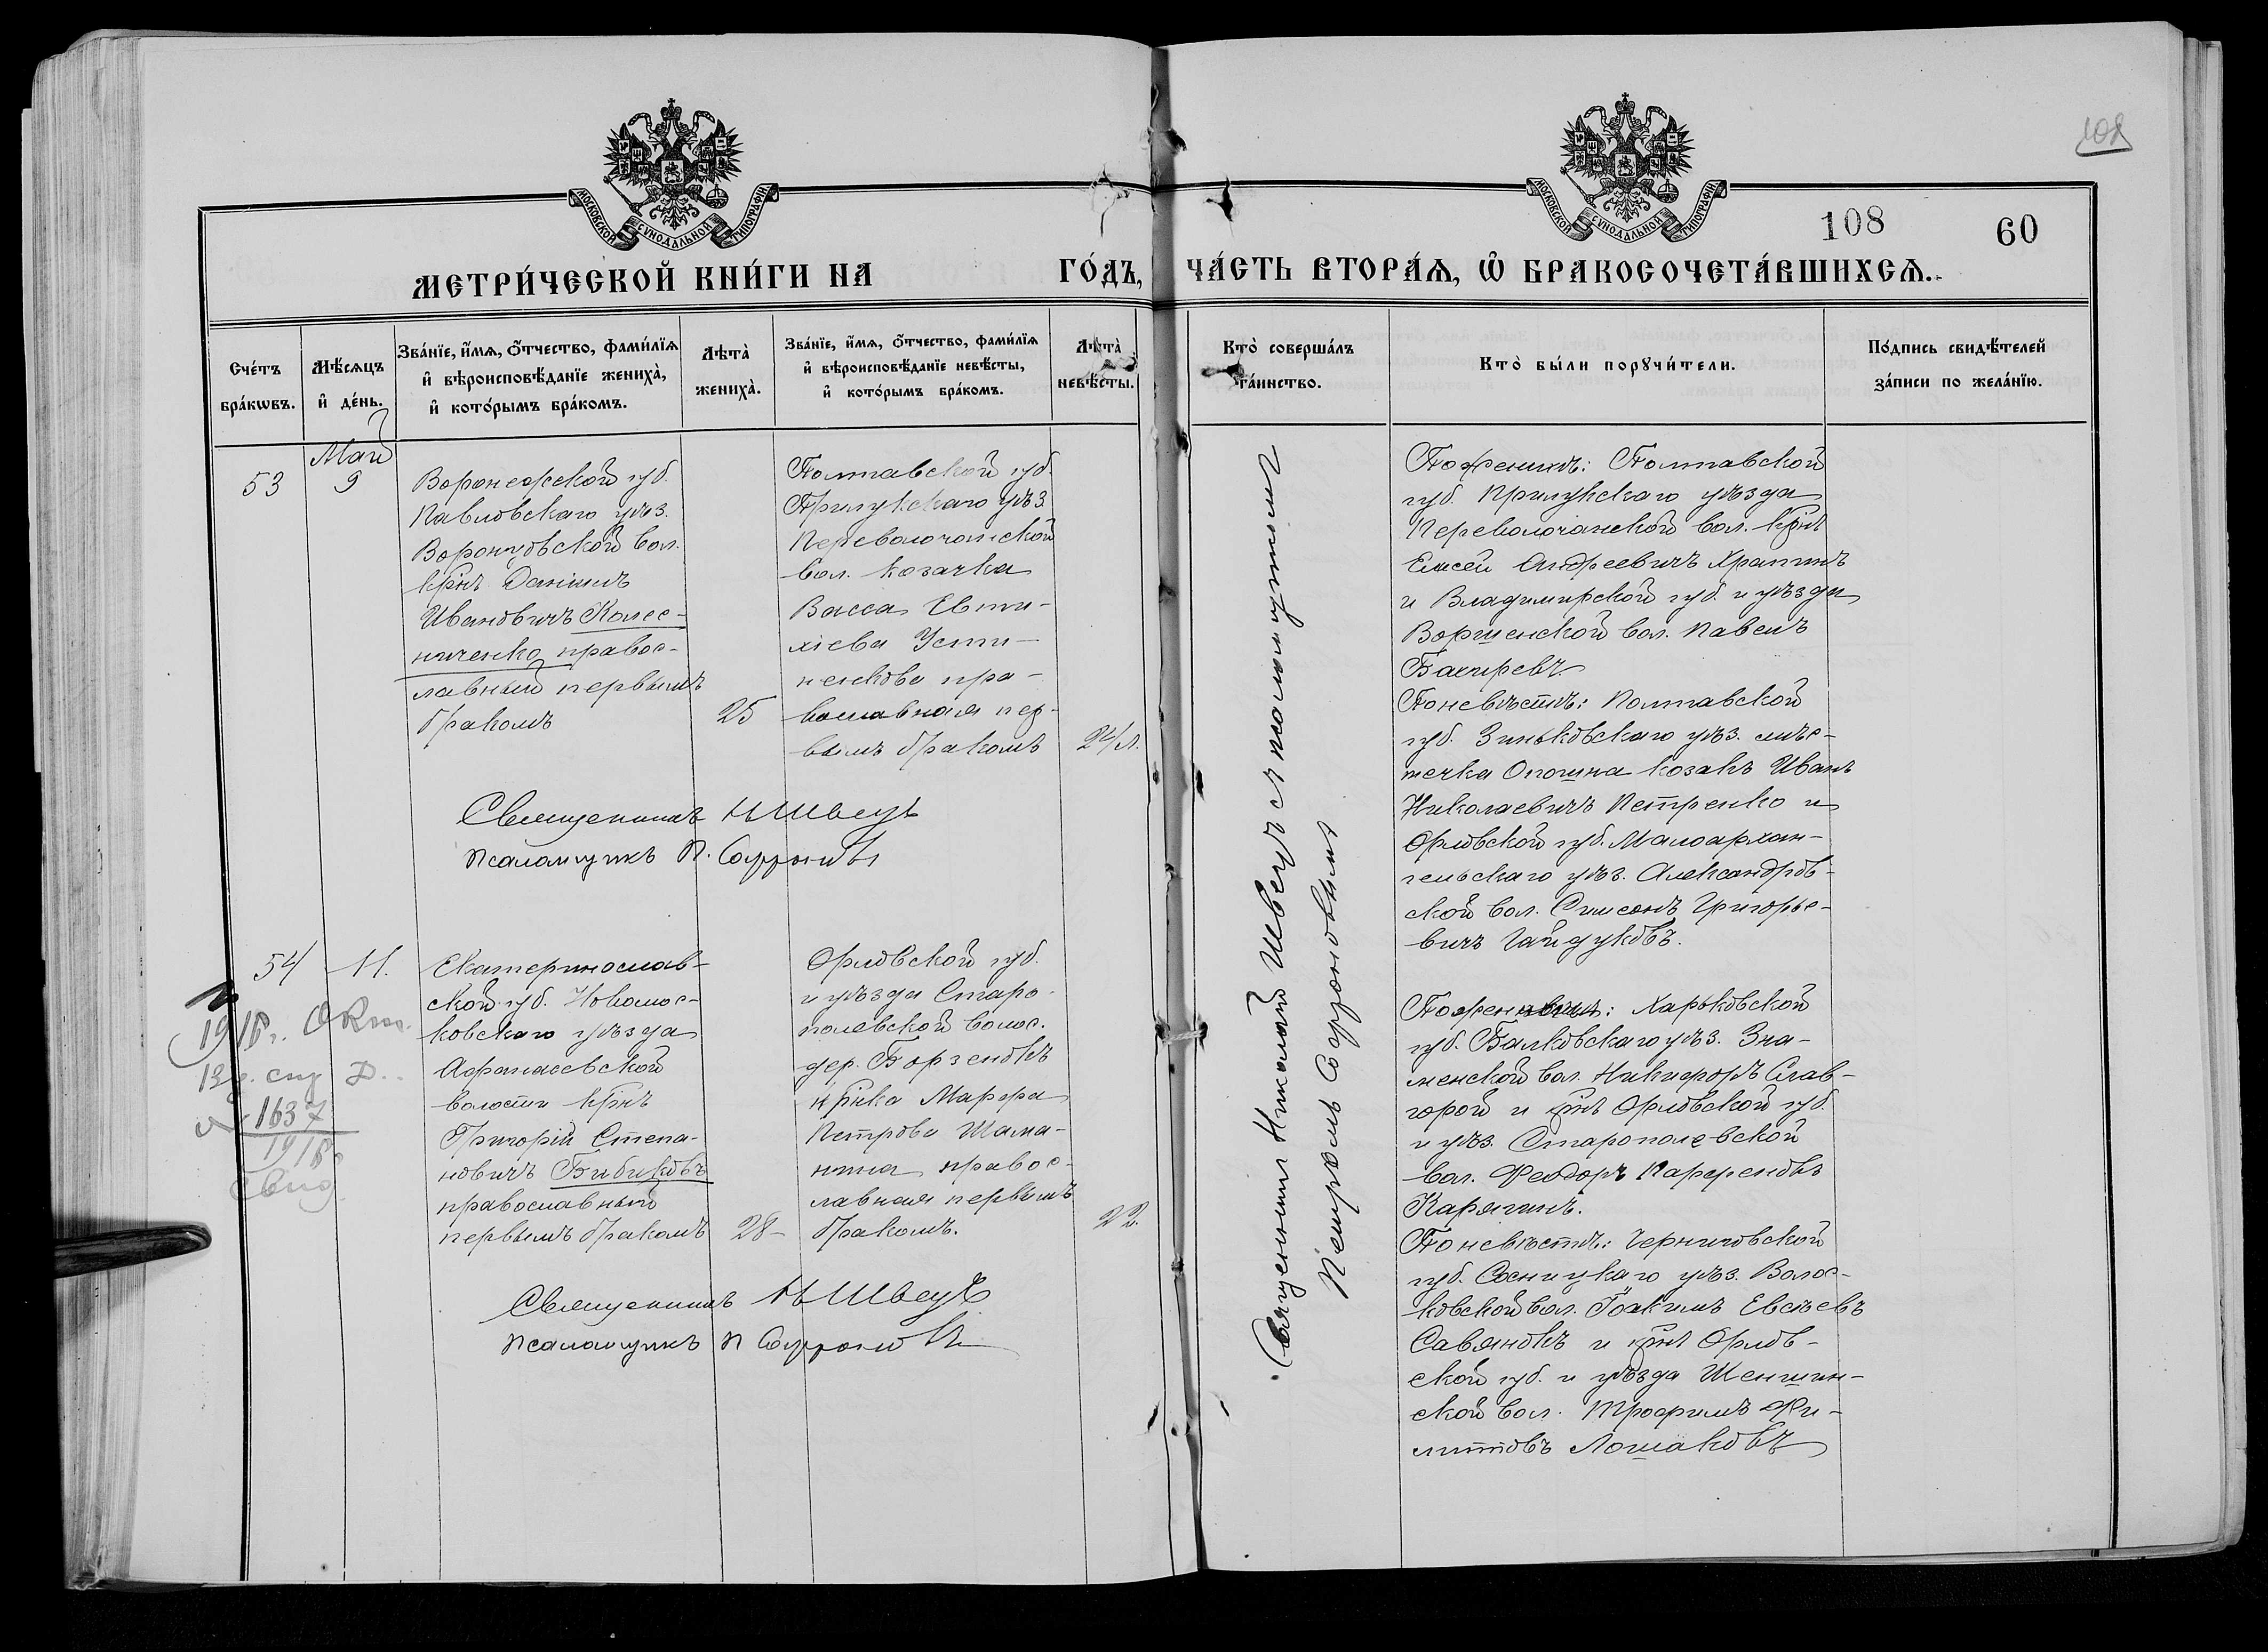 МОСКОВСКОЙ СУНОДАЛЬНОЙ ТИПОГРАФІИ
МОСКОВСКОЙ СУНОДАЛЬНОЙ ТИПОГРАФІИ
108
108
60
МЕТРИ́ЧЕСКОЙ КНИ́ГИ НА ГО́ДЪ, ЧА́СТЬ ВТОРА́Ѧ, Ѽ БРАКОСОЧЕТА́ВШИХСѦ.
Сче́тъ
бра́кѡвъ.
Мѣ́сѧцъ
и҆ де́нь.
Зва́нїе, и҆́мѧ, ѻ҆́тчество, фами́лїѧ
и҆ вѣроисповѣ́данїе жениха̀,
и҆ кото́рымъ бра́комъ.
Лѣта̀
жениха̀.
Зва́нїе, и҆́мѧ, ѻ҆́тчество, фами́лїѧ
и҆ вѣроисповѣ́данїе невѣ́сты,
и҆ кото́рымъ бра́комъ.
Лѣта̀
невѣ́сты.
Кто̀ соверша́лъ
та́инство.
Кто̀ бы́ли порꙋчи́тели.
По́дпись свидѣ́телей
за́писи по жела́нїю.
53
Май
9
Воронежской губ.
Павловскаго уѣз.
Воронцовской вол.
крнъ Даніилъ
Ивановичъ Колес-
ниченко правос-
лавный первымъ
бракомъ
25
Полтавской губ.
Прилукскаго уѣз
Переволочанской
вол. козачка
Васса Евти-
хіева Усти-
ненкова пра-
вославная пер-
вымъ бракомъ
24 л.
Священникъ Н Швецъ
Псаломщикъ П. Софроновъ
Священникъ Николай Швецъ съ псаломщикомъ
Петромъ Софроновымъ
По женихѣ: Полтавской
губ. Прилукскаго уѣзда
Переволочанской вол. крнъ
Елисей Андреевичъ Храпинъ
и Владимирской губ. и уѣзда
Воршенской вол. Павелъ
По невѣстѣ: Полтавской
губ. Зиньковскаго уѣз. мѣс-
течка Опошна козакъ Иванъ
Николаевичъ Петренко и
Орловской губ. Малоархан-
гельскаго уѣз. Александров-
ской вол. Симеонъ Григорье-
вичъ Гайдуковъ.
54
11.
Екатеринослав-
ской губ. Новомос-
ковскаго уѣзда
Афанасьевской
волости крнъ
Григорій Степа-
новичъ Бибиковъ
православный
первымъ бракомъ
28
Орловской губ.
и уѣзда Старо-
полевской волос.
дер. Борзенокъ
крнка Марфа
Петрова Шама-
нина правос-
лавная первымъ
бракомъ.
22
1637
Священникъ Н Швецъ
Псаломщикъ П Софроновъ
По женихѣ: Харьковской
губ. Валковскаго уѣз. Зна-
менской вол. Никифоръ Слав-
горой и крнъ Орловской губ.
и уѣз. Старополевской
вол. Феодоръ Парфеновъ
Карягинъ.
По невѣстѣ: Черниговской
губ. Сосницкаго уѣз. Волос-
ковской вол. Іоакимъ Евсѣевъ
Савянокъ и крнъ Орлов-
ской губ. и уѣзда Шеншин-
ской вол. Трофимъ Фи-
липповъ Лошаковъ